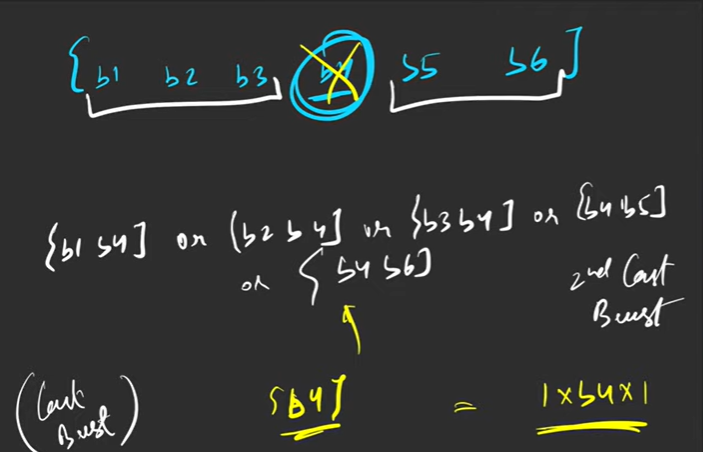 {b1 b2 b3 b4 b5 b6]
{b1 b4] or [b2 b4] or {b3 b4] or {b4 b5]
or { b4 b6]
2nd Last
Burst
(Last
Burst)
{b4] = 1×b4×1